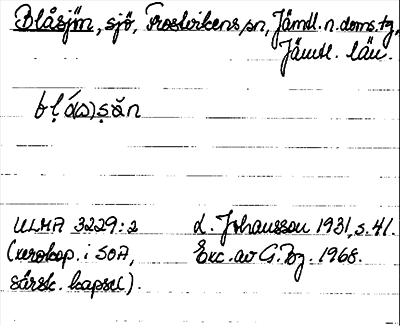 Blåsjön, sjö, Frostvikens sn, Jämtl. n. doms. tg,
Jämtl. län.
ULMA 3229:2 L. Johansson 1931, s. 41.
(xerokop. i SOA, Exc. av G. Bg. 1968.
särsk. kapsel).